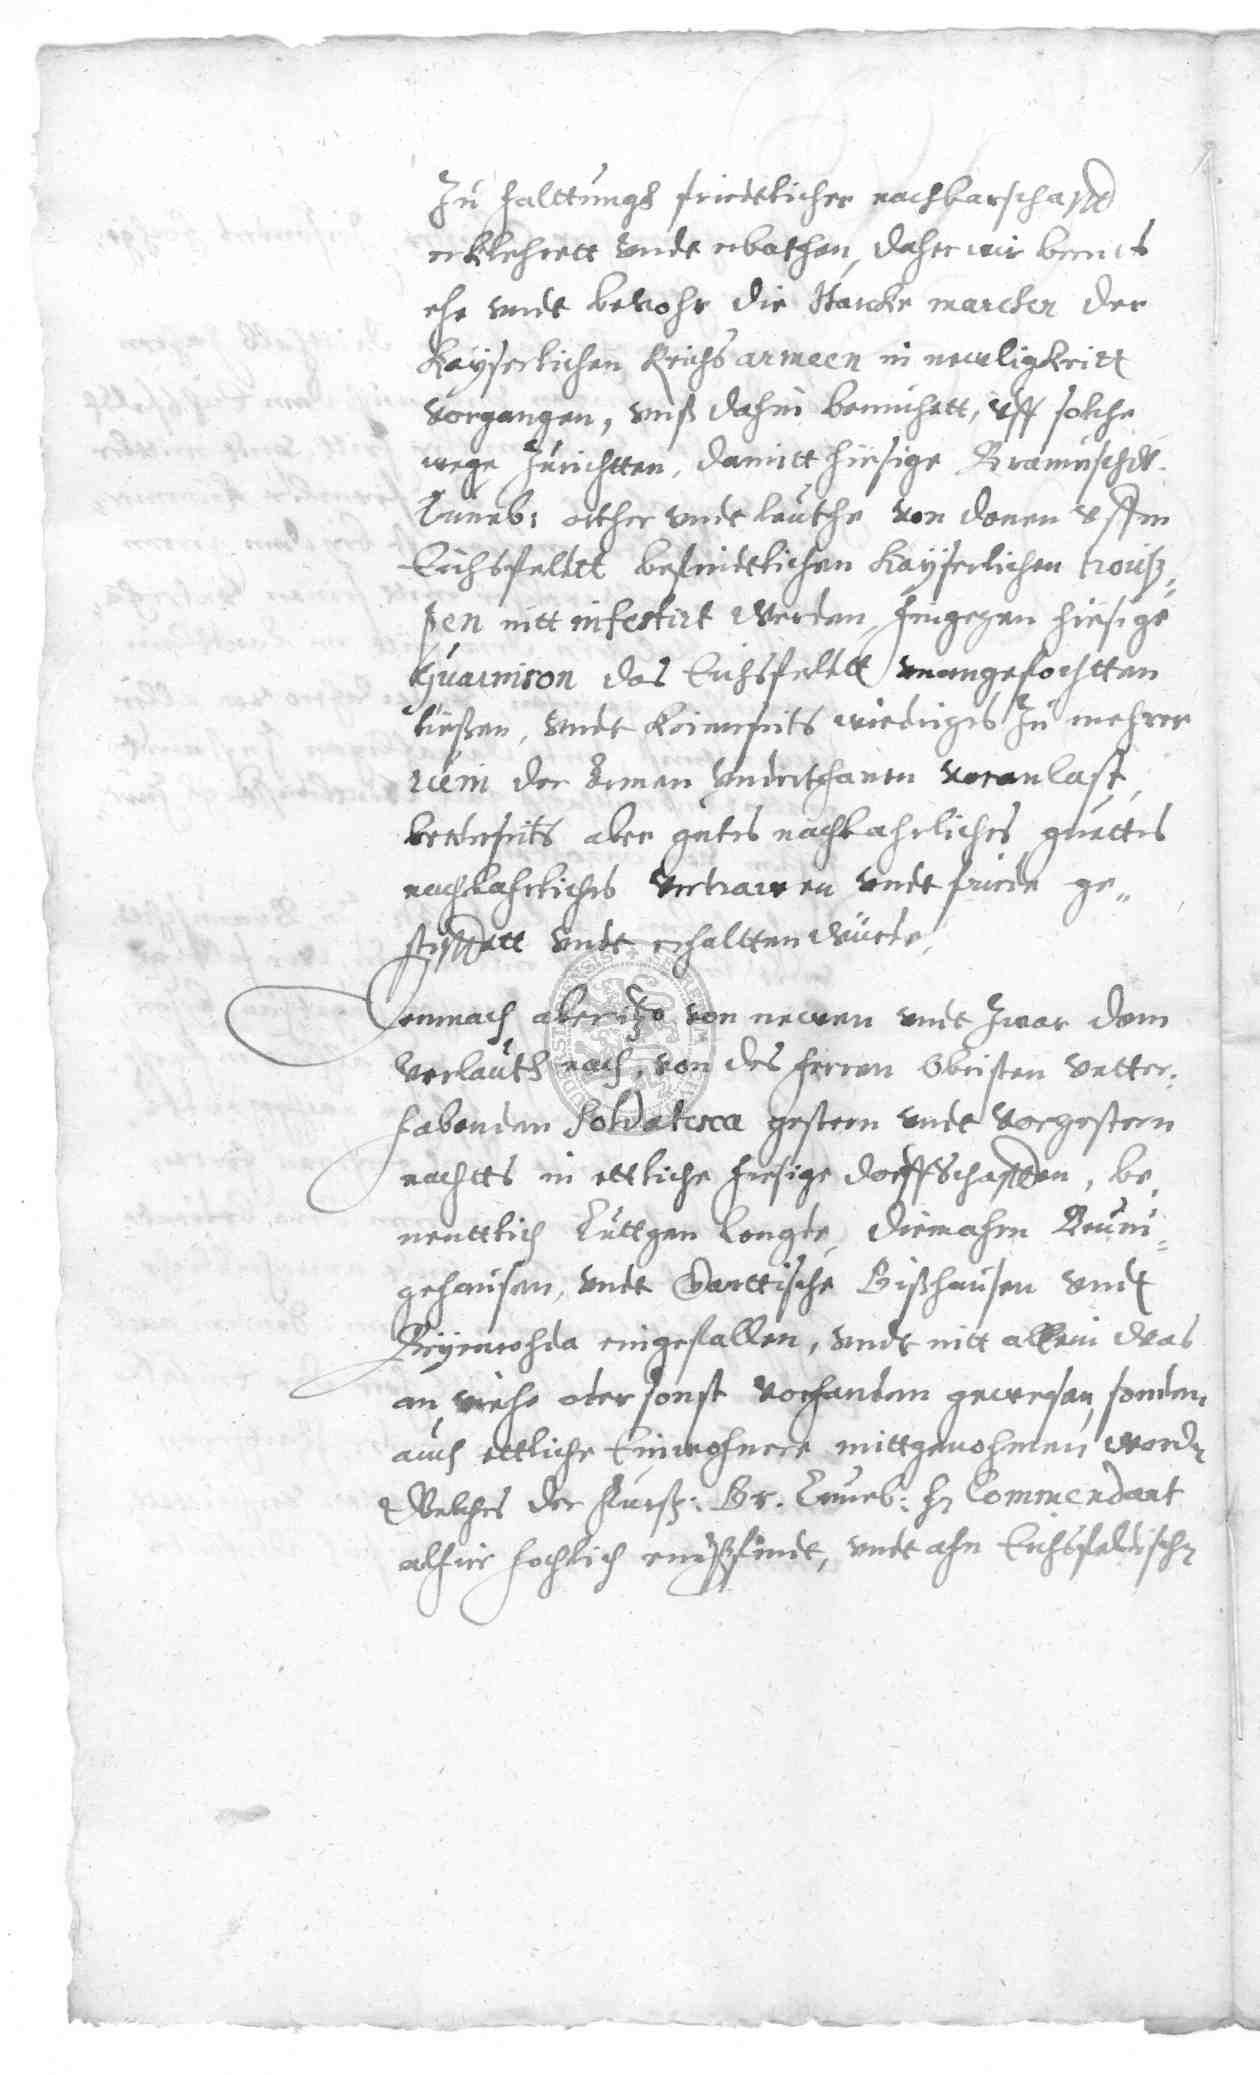 Zu halttungk friedtlicher nachbarschafft
erklehrett vndt erbothen, daher wir bereits
ehe vndt bevohr die starcke marcher der
Kayserlichen Krichs armeen in neuligkeitt
vorgangen, vnß dahin bemühett, vff solche
wege zurichtten, damitt hiesige Braunschw:
Luneb: örther vndt leuthe von denen vffm
Eichsfeldtt befindtlichen Kayserlichen troup„
pen nitt infestirt werden, hingegen hiesige
Guarnison das Eichsfeldtt unangefochtten
ließen, vndt keinerseits wiedriges zu mehrer
ruin der armen vnderthanen veranlast,
beederseits aber gutes nachbahrliches guettes
nachbahrliches vertrawen vndt friede ge„
stifftett vndt erhaltten würde,
Demnach aber itzo von newen vndt zwar dem
verlauth nach, von des herren Obristen vnter„
habenden Soldatesca gestern vndt vorgestern
nachtts in ettliche hiesige dorffschafften, be„
nenttlich Lüttgen Lengde, Diemahrn
gehausen, vndt Gartische Bißhausen vndt
eingefallen, vndt nitt allein was
an viehe oder sonst vorhanden gewesen, sondern
auch ettliche Einwohnere mittgenohmen worden
Welches der Fürstl: Br. Luneb: H. Commendant
alhier hochlich empfindt, vndt ahn Eichsfeldischen